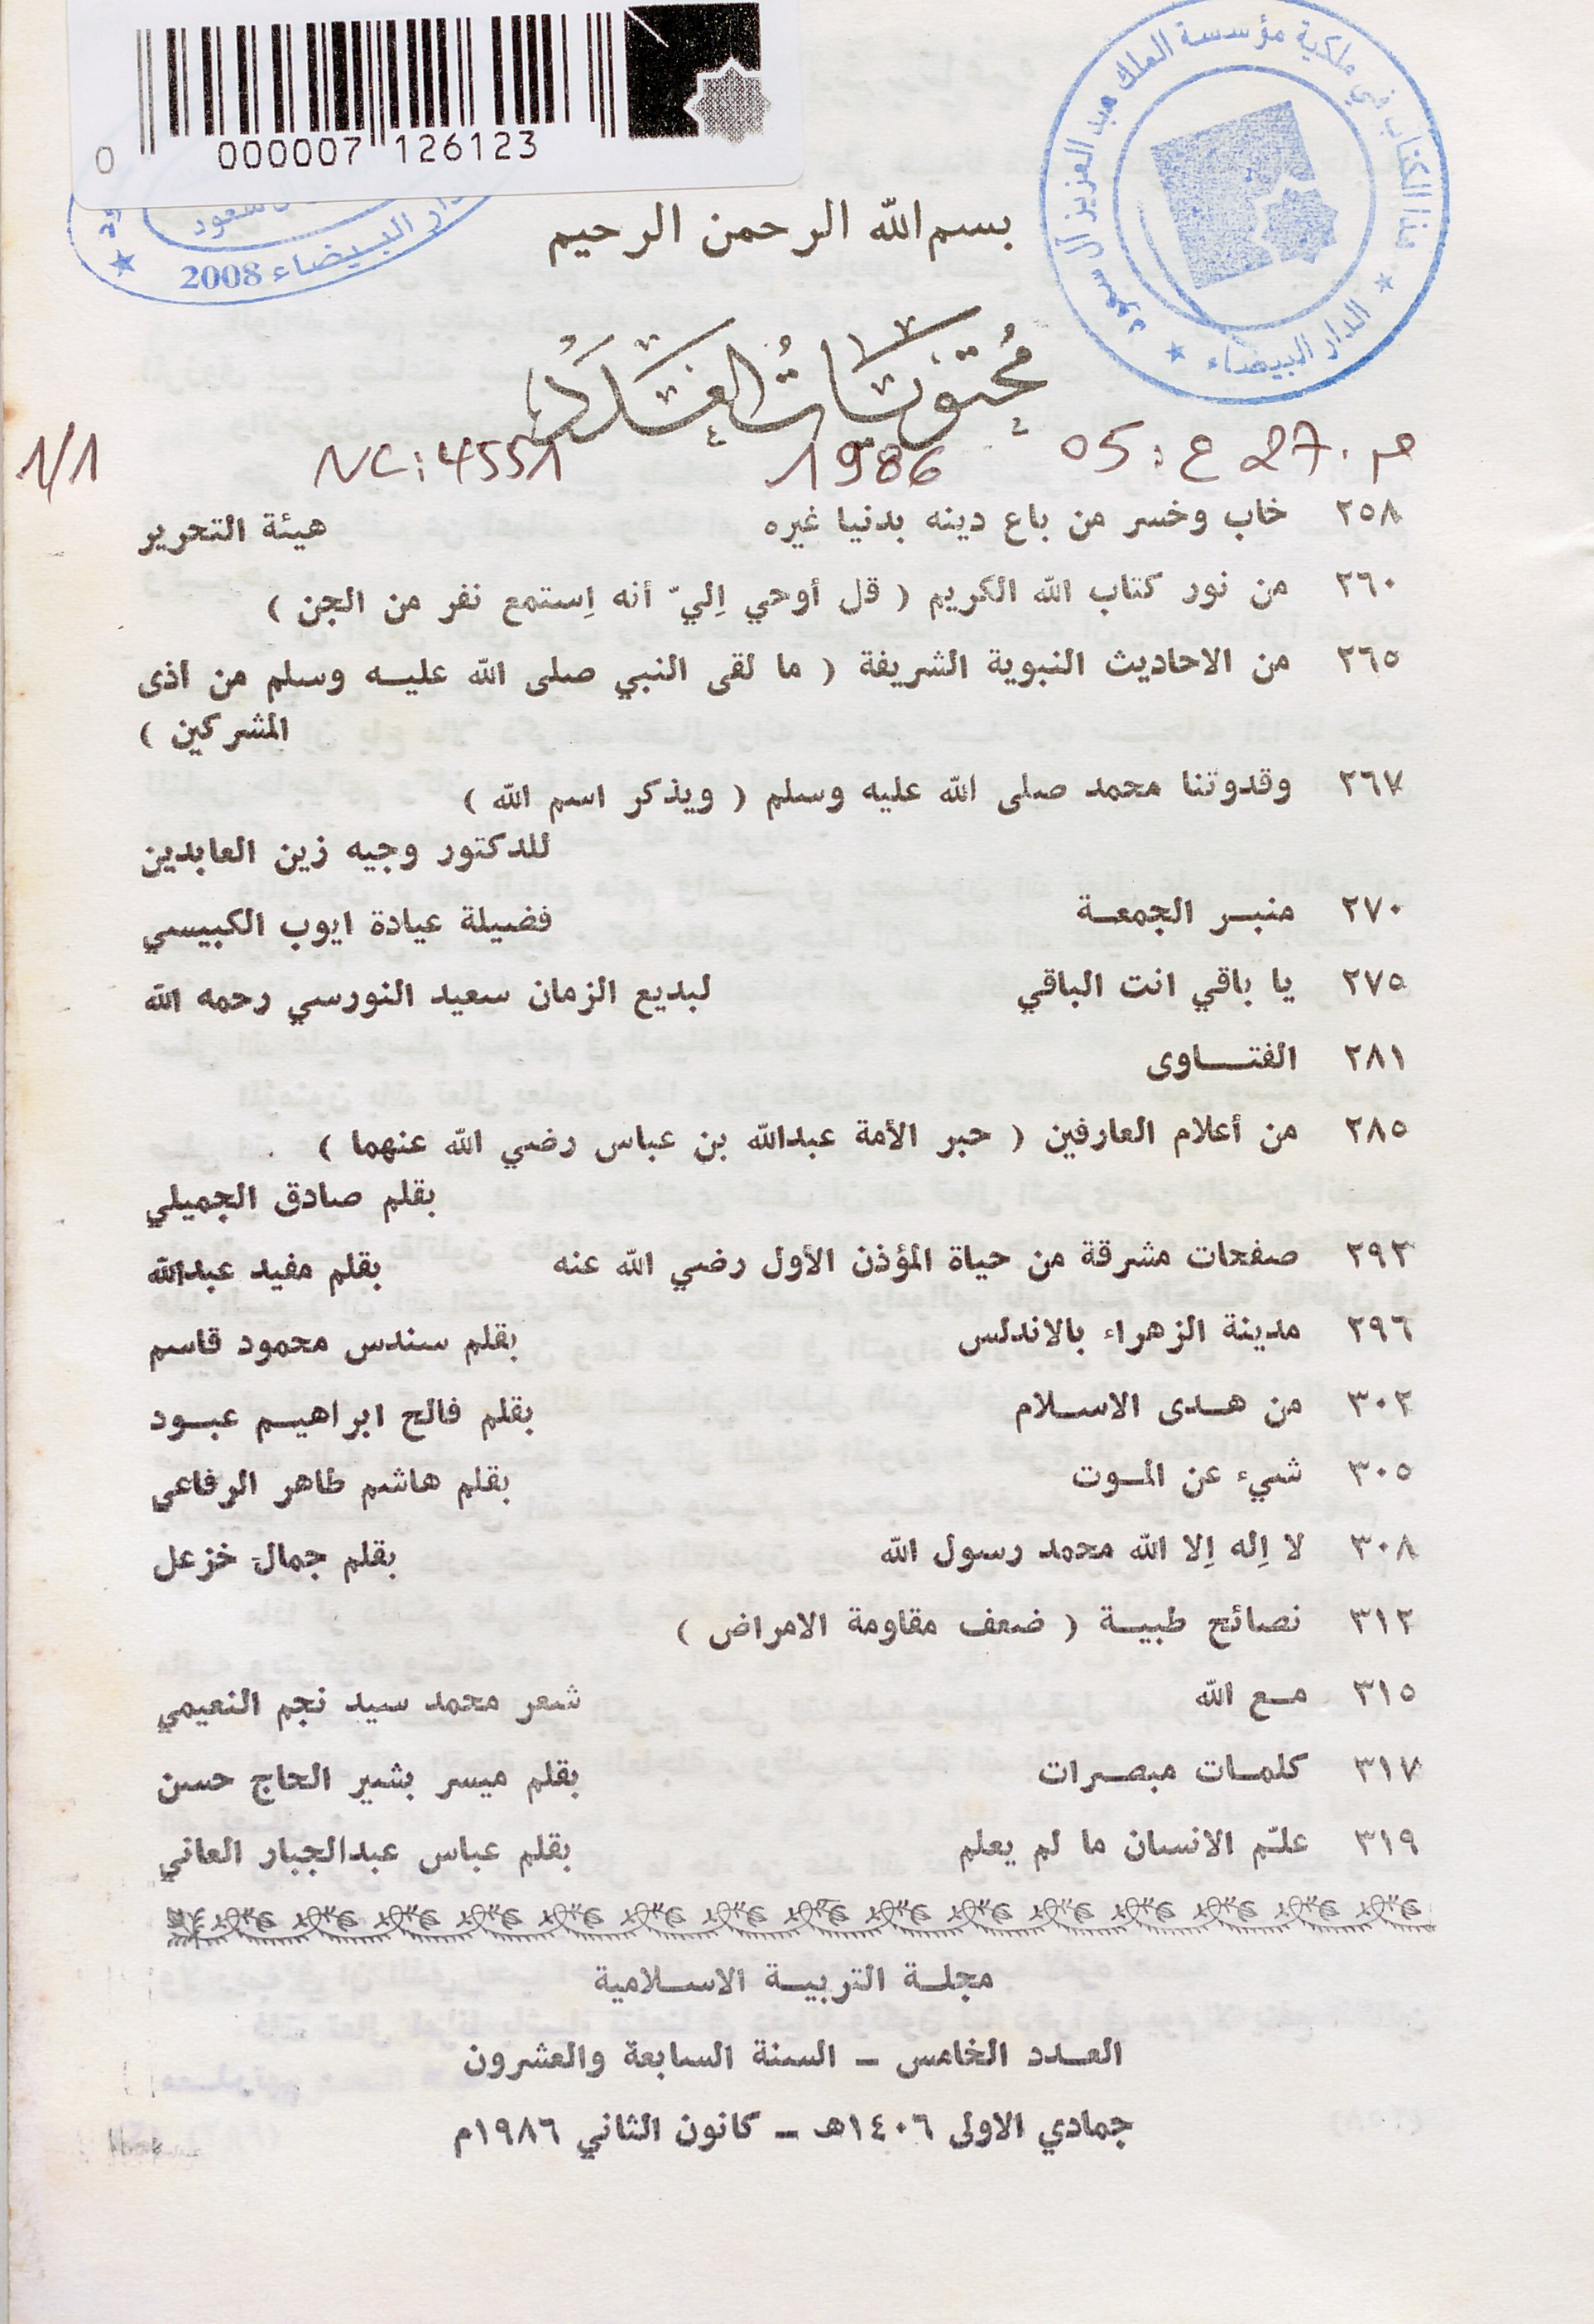 0 000007 126123
هذا الكتاب في ملكية مؤسسة الملك عبد العزيز آل سعود
الدار البيضاء
سعود
الدار البيضاء 2008
بسم الله الرحمن الرحيم
مُحتَوَيَاتُ العَدَد
م. 27 ع : 05
1986
NC : 4551
1/1
٢٥٨ خاب وخسر من باع دينه بدنيا غيره هيئة التحرير
٢٦٠ من نور كتاب الله الكريم ( قل أوحي إليّ أنه إستمع نفر من الجن )
٢٦٥ من الاحاديث النبوية الشريفة ( ما لقى النبي صلى الله عليه وسلم من اذى
المشركين )
٢٦٧ وقدوتنا محمد صلى الله عليه وسلم ( ويذكر اسم الله )
للدكتور وجيه زين العابدين
٢٧٠ منبر الجمعة فضيلة عيادة ايوب الكبيسي
٢٧٥ يا باقي انت الباقي لبديع الزمان سعيد النورسي رحمه الله
٢٨١ الفتاوى
٢٨٥ من أعلام العارفين ( حبر الأمة عبدالله بن عباس رضي الله عنهما )
بقلم صادق الجميلي
٢٩٣ صفحات مشرقة من حياة المؤذن الأول رضي الله عنه بقلم مفيد عبدالله
٢٩٦ مدينة الزهراء بالاندلس بقلم سندس محمود قاسم
٣٠٢ من هدى الاسلام بقلم فالح ابراهيم عبود
٣٠٥ شيء عن الموت بقلم هاشم طاهر الرفاعي
٣٠٨ لا إله إلا الله محمد رسول الله بقلم جمال خزعل
٣١٢ نصائح طبية ( ضعف مقاومة الامراض )
٣١٥ مع الله شعر محمد سيد نجم النعيمي
٣١٧ كلمات مبصرات بقلم ميسر بشير الحاج حسن
٣١٩ علّم الانسان ما لم يعلم بقلم عباس عبدالجبار العاني
مجلة التربية الاسلامية
العدد الخامس – السنة السابعة والعشرون
جمادي الاولى ١٤٠٦هـ – كانون الثاني ١٩٨٦م